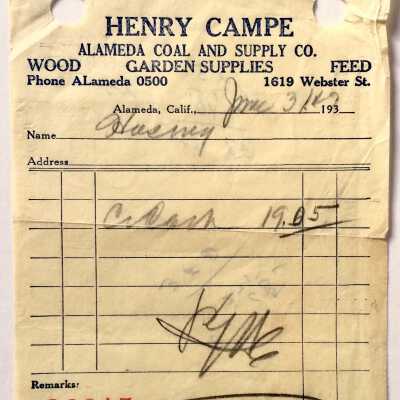 HENRY CAMPE
ALAMEDA COAL AND SUPPLY CO.
WOOD GARDEN SUPPLIES FEED
Phone ALameda 0500 1619 Webster St.
Alameda, Calif., June 3 193
Name
Address
Cr Cash 19.05
Remarks: